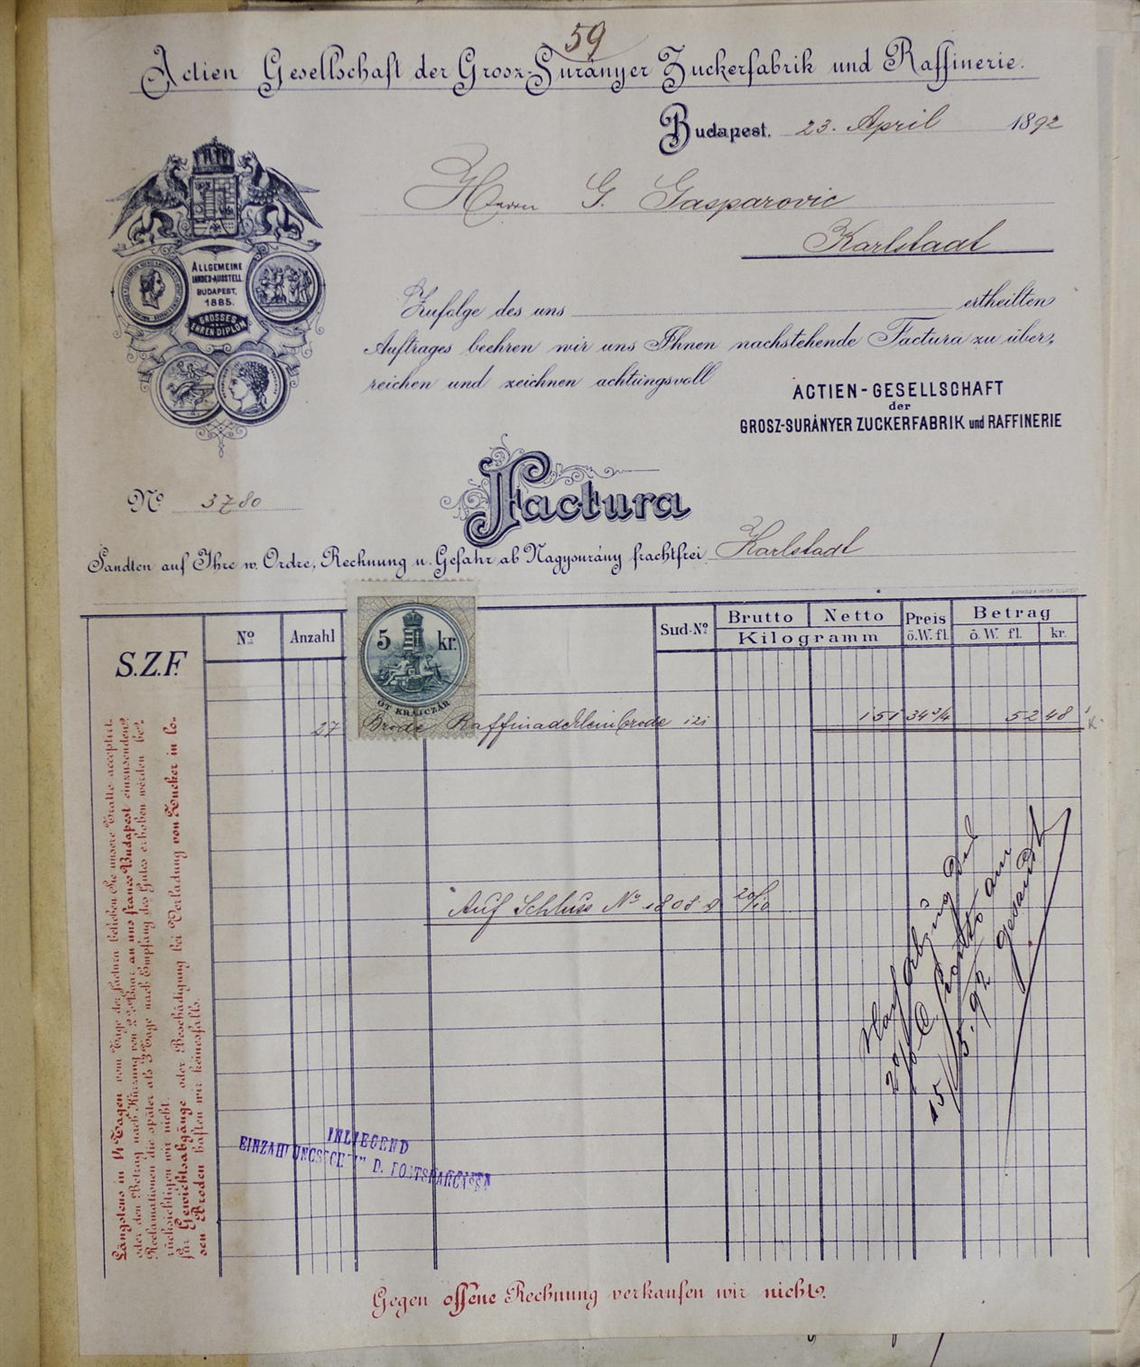 59
Actien Gesellschaft der Grosz-Surányer Zuckerfabrik und Raffinerie.
Budapest, 23. April 1892
Herrn G. Gasparovic
Karlstadt
ALLGEMEINE
LANDES-AUSSTELL.
BUDAPEST,
1885.
GROSSES
EHREN DIPLOM
Zufolge des uns ertheilten
Auftrages beehren wir uns Ihnen nachstehende Factura zu über,
reichen und zeichnen achtungsvoll
ACTIEN-GESELLSCHAFT
der
GROSZ-SURÁNYER ZUCKERFABRIK und RAFFINERIE
Factura
No 3780
Sandten auf Ihre w. Ordre, Rechnung u. Gefahr ab Nagysurány frachtfrei Karlstadt
S.Z.F.
No Anzahl Sud-No Brutto Netto Preis Betrag
Kilogramm ö.W.fl. ö. W. fl. kr.
5 kr.
ÖT KRAJCZÁR
27 Brode Raffinade Kleinbrode 121 151 34 3/4 52 48
Auf Schluss No 1808 20/10
Nach Abzug
2% Porto am
15/5.92 gesandt
Längstens in 14 Tagen vom Tage der Factura belieben Sie unsere Tratte acceptirt
oder den Betrag nach Kürzung von 2% Baar an uns franco Budapest einzusenden.
Reclamationen die später als 3 Tage nach Empfang des Gutes erhoben werden be,
rücksichtigen wir nicht.
für Gewichtsabgänge oder Beschädigung bei Verladung von Zucker in lo,
sen Broden haften wir keinesfalls.
INLIEGEND
Gegen offene Rechnung verkaufen wir nicht.